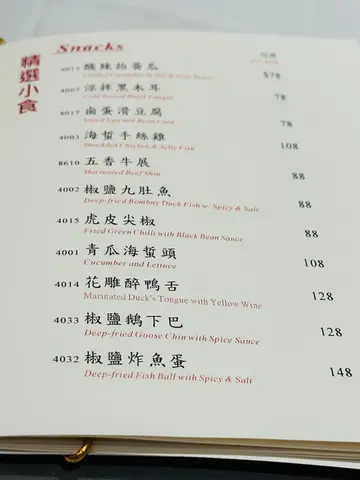 精選小食
Snacks
4013 酸辣拍黃瓜 $78
4007 涼拌黑木耳 78
Cold Tossed Black Fungus
4017 鹵蛋滑豆腐 78
Sauced Egg and Bean Curd
4003 海蜇手絲雞 108
Shredded Chicken & Jelly Fish
8610 五香牛展 88
Marinated Beef Shin
4002 椒鹽九肚魚 88
Deep-fried Bombay Duck Fish w. Spicy & Salt
4015 虎皮尖椒 88
Fried Green Chilli with Black Bean Sauce
4001 青瓜海蜇頭 108
Cucumber and Lettuce
4014 花雕醉鴨舌 128
Marinated Duck's Tongue with Yellow Wine
4033 椒鹽鵝下巴 128
Deep-fried Goose Chin with Spice Sauce
4032 椒鹽炸魚蛋 148
Deep-fried Fish Ball with Spicy & Salt